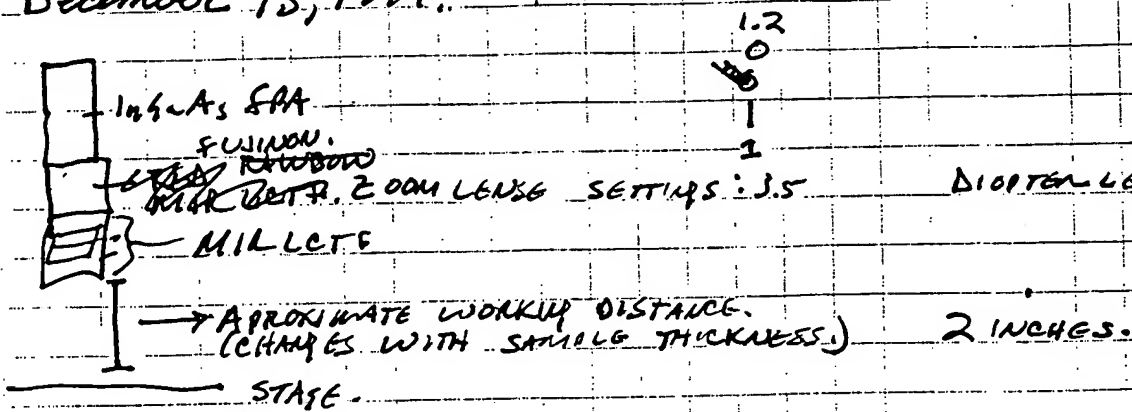 December 15, 19
1.2
InGaAs FPA
1
FUJINON.
ZOOM LENSE SETTINGS: 3.5 DIOPTER LE
MIR LCTF
APROXIMATE WORKING DISTANCE.
(CHANGES WITH SAMPLE THICKNESS.) 2 INCHES.
STAGE.